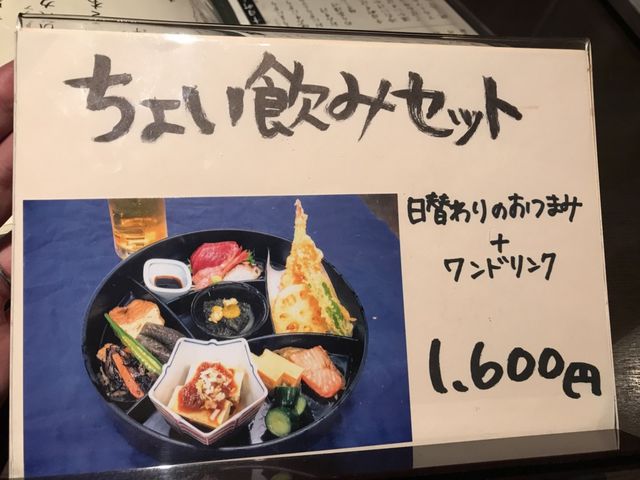 ちょい飲みセット
日替わりのおつまみ
+
ワンドリンク
1,600円